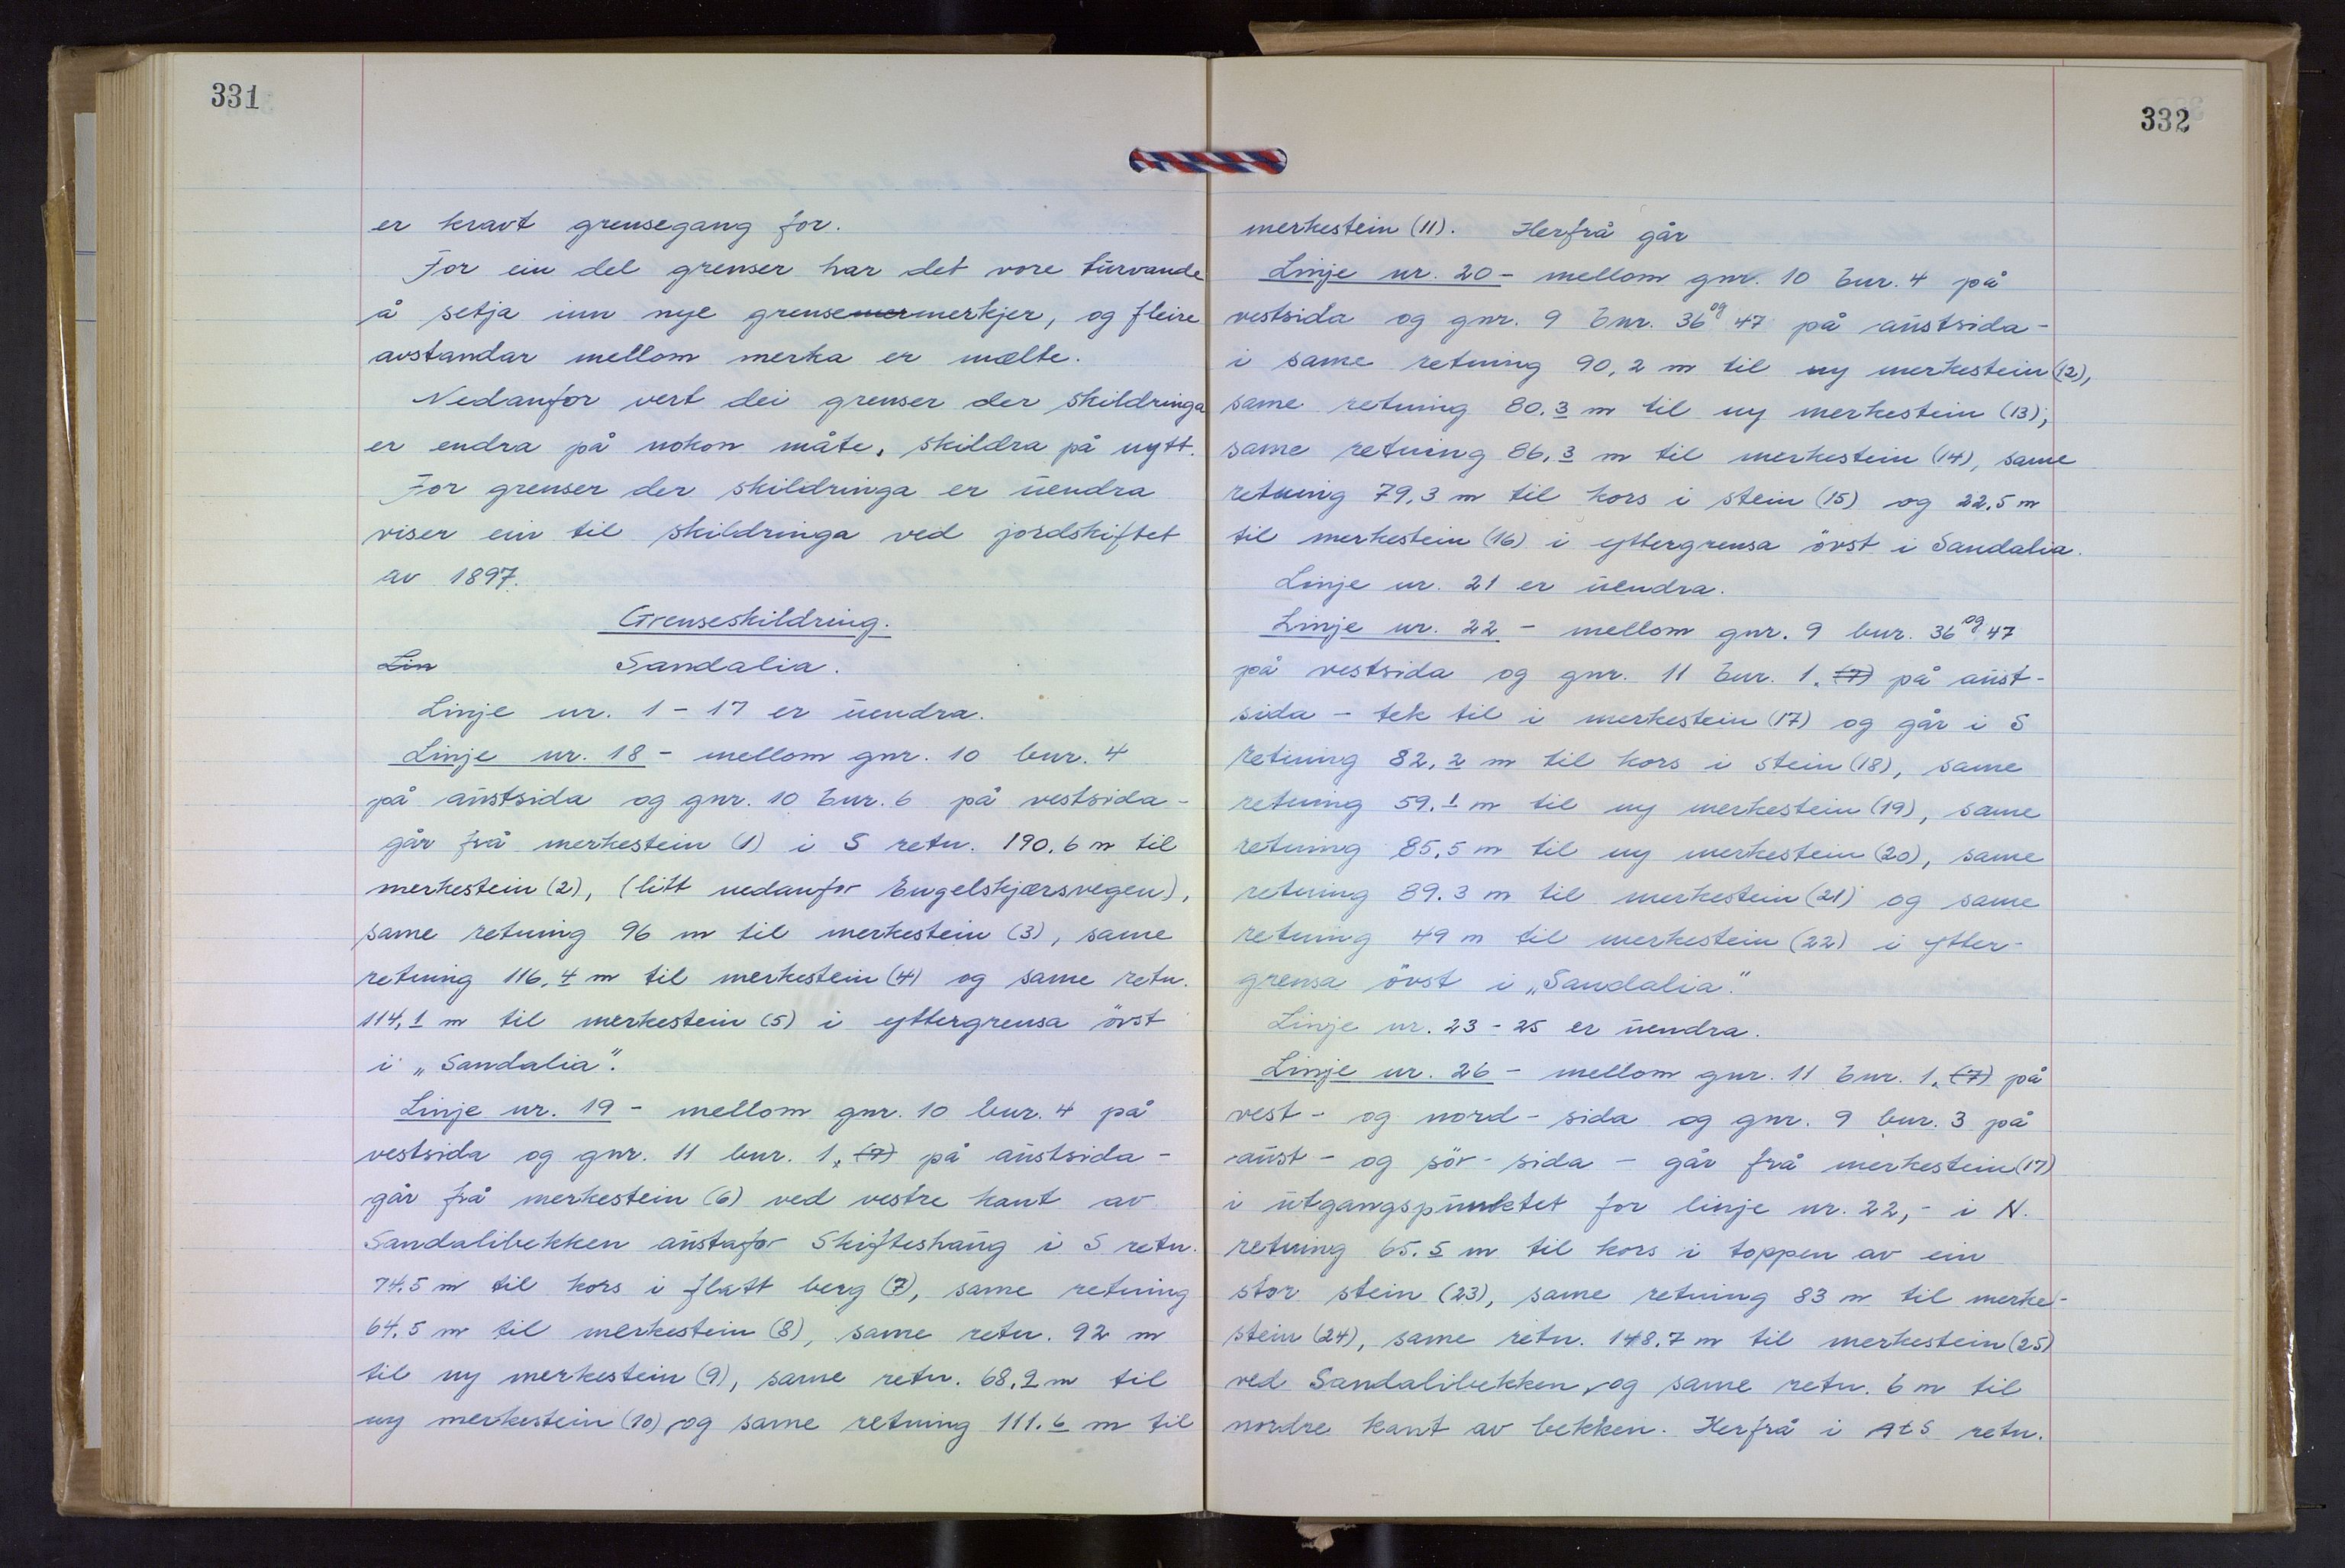 331
er kravt grensegang for.
For ein del grenser har det vore turvande
å setja inn nye grensemermerkjer, og fleire
avstandar mellom merka er mælte.
Nedanfor vert dei grenser der skildringa
er endra på nokon måte, skildra på nytt.
For grenser der skildringa er uendra
viser ein til skildringa ved jordskiftet
av 1897.
Grenseskildring.
Lin Sandalia.
Linje nr. 1 - 17 er uendra.
Linje nr. 18 - mellom gnr. 10 bnr. 4
på austsida og gnr. 10 bnr. 6 på vestsida -
går frå merkestein (1) i S retn. 190,6 m til
merkestein (2), (litt nedanfor Engelskjærsvegen),
same retning 96 m til merkestein (3), same
retning 116,4 m til merkestein (4) og same retn.
114,1 m til merkestein (5) i yttergrensa övst
i „Sandalia".
Linje nr. 19 - mellom gnr. 10 bnr. 4 på
vestsida og gnr. 11 bnr. 1, (7) på austsida -
går frå merkestein (6) ved vestre kant av
Sandalibekken austafor Skifteshaug i S retn.
74,5 m til kors i flatt berg (7), same retning
64,5 m til merkestein (8), same retn. 92 m
til ny merkestein (9), same retn. 68,2 m til
ny merkestein (10), og same retning 111,6 m til
332
merkestein (11). Herfrå går
Linje nr. 20 - mellom gnr. 10 bnr. 4 på
vestsida og gnr. 9 bnr. 36 og 47 på austsida -
i same retning 90,2 m til ny merkestein (12),
same retning 80,3 m til ny merkestein (13),
same retning 86,3 m til merkestein (14), same
retning 79,3 m til kors i stein (15) og 22,5 m
til merkestein (16) i yttergrensa övst i Sandalia.
Linje nr. 21 er uendra.
Linje nr. 22 - mellom gnr. 9 bnr. 36 og 47
på vestsida og gnr. 11 bnr. 1, (7) på aust-
sida - tek til i merkestein (17) og går i S
retning 82,2 m til kors i stein (18), same
retning 59,1 m til ny merkestein (19), same
retning 85,5 m til ny merkestein (20), same
retning 89,3 m til merkestein (21) og same
retning 49 m til merkestein (22) i ytter-
grensa övst i „Sandalia".
Linje nr. 23 - 25 er uendra.
Linje nr. 26 - mellom gnr. 11 bnr. 1, (7) på
vest- og nord-sida og gnr. 9 bnr. 3 på
aust- og sör-sida - går frå merkestein (17)
i utgangspunktet for linje nr. 22, - i N.
retning 65,5 m til kors i toppen av ein
stor stein (23), same retning 83 m til merke-
stein (24), same retn. 148,7 m til merkestein (25)
ved Sandalibekken, og same retn. 6 m til
nordre kant av bekken. Herfrå i AtS retn.